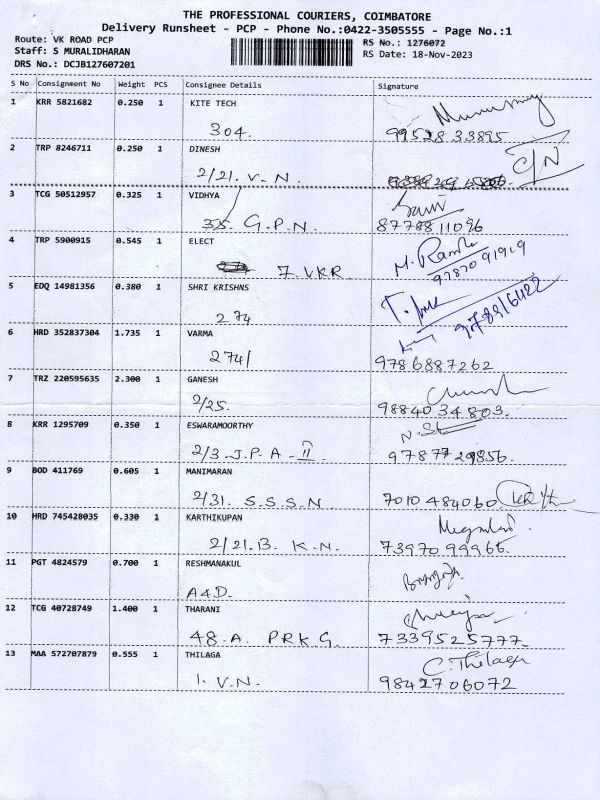 THE PROFESSIONAL COURIERS, COIMBATORE
Delivery Runsheet - PCP - Phone No.:0422-3505555 - Page No.:1
Route: VK ROAD PCP
RS No.: 1276072
Staff: S MURALIDHARAN
RS Date: 18-Nov-2023
DRS No.: DCJB127607201
S No Consignment No Weight PCS Consignee Details Signature
1 KRR 5821682 0.250 1 KITE TECH
304. 99528 33895
2 TRP 8246711 0.250 1 DINESH
2/21. V. N.
3 TCG 50512957 0.325 1 VIDHYA
35. G.P.N. 87788 11096
4 TRP 5900915 0.545 1 ELECT M. Ramla
7 VKR. 97870 91919
5 EDQ 14981356 0.380 1 SHRI KRISHNS
274
6 HRD 352837304 1.735 1 VARMA
274/ 9786887262
7 TRZ 220595635 2.300 1 GANESH
2/25. 98840 34803.
8 KRR 1295709 0.350 1 ESWARAMOORTHY
2/3 J.P.A - II 97877 29856.
9 BOD 411769 0.605 1 MANIMARAN
2/31. S.S.S.N 7010 484060
10 HRD 745428035 0.330 1 KARTHIKUPAN
2/21.B. K.N. 73970 99966.
11 PGT 4824579 0.700 1 RESHMANAKUL
A4D.
12 TCG 40728749 1.400 1 THARANI
48. A. PRKG. 7339525777.
13 MAA 572707879 0.555 1 THILAGA C. Thilaga
1. V.N. 9842706072